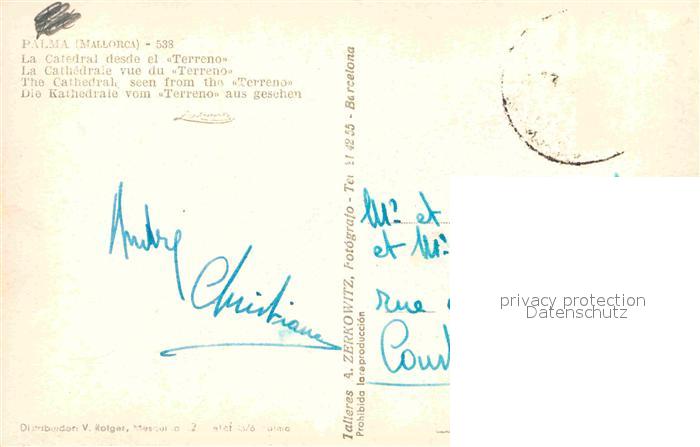 PALMA (MALLORCA) - 538
La Catedral desde el «Terreno»
La Cathédrale vue du «Terreno»
The Cathedral, seen from the «Terreno»
Die Kathedrale vom «Terreno» aus gesehen
André
Christiane
Talleres A. ZERKOWITZ, Fotógrafo - 42 55 - Barcelona
Prohibida la reproducción
Mr et
et Mr
rue
privacy protection
Datenschutz
Distribuidor: V. Rotger,